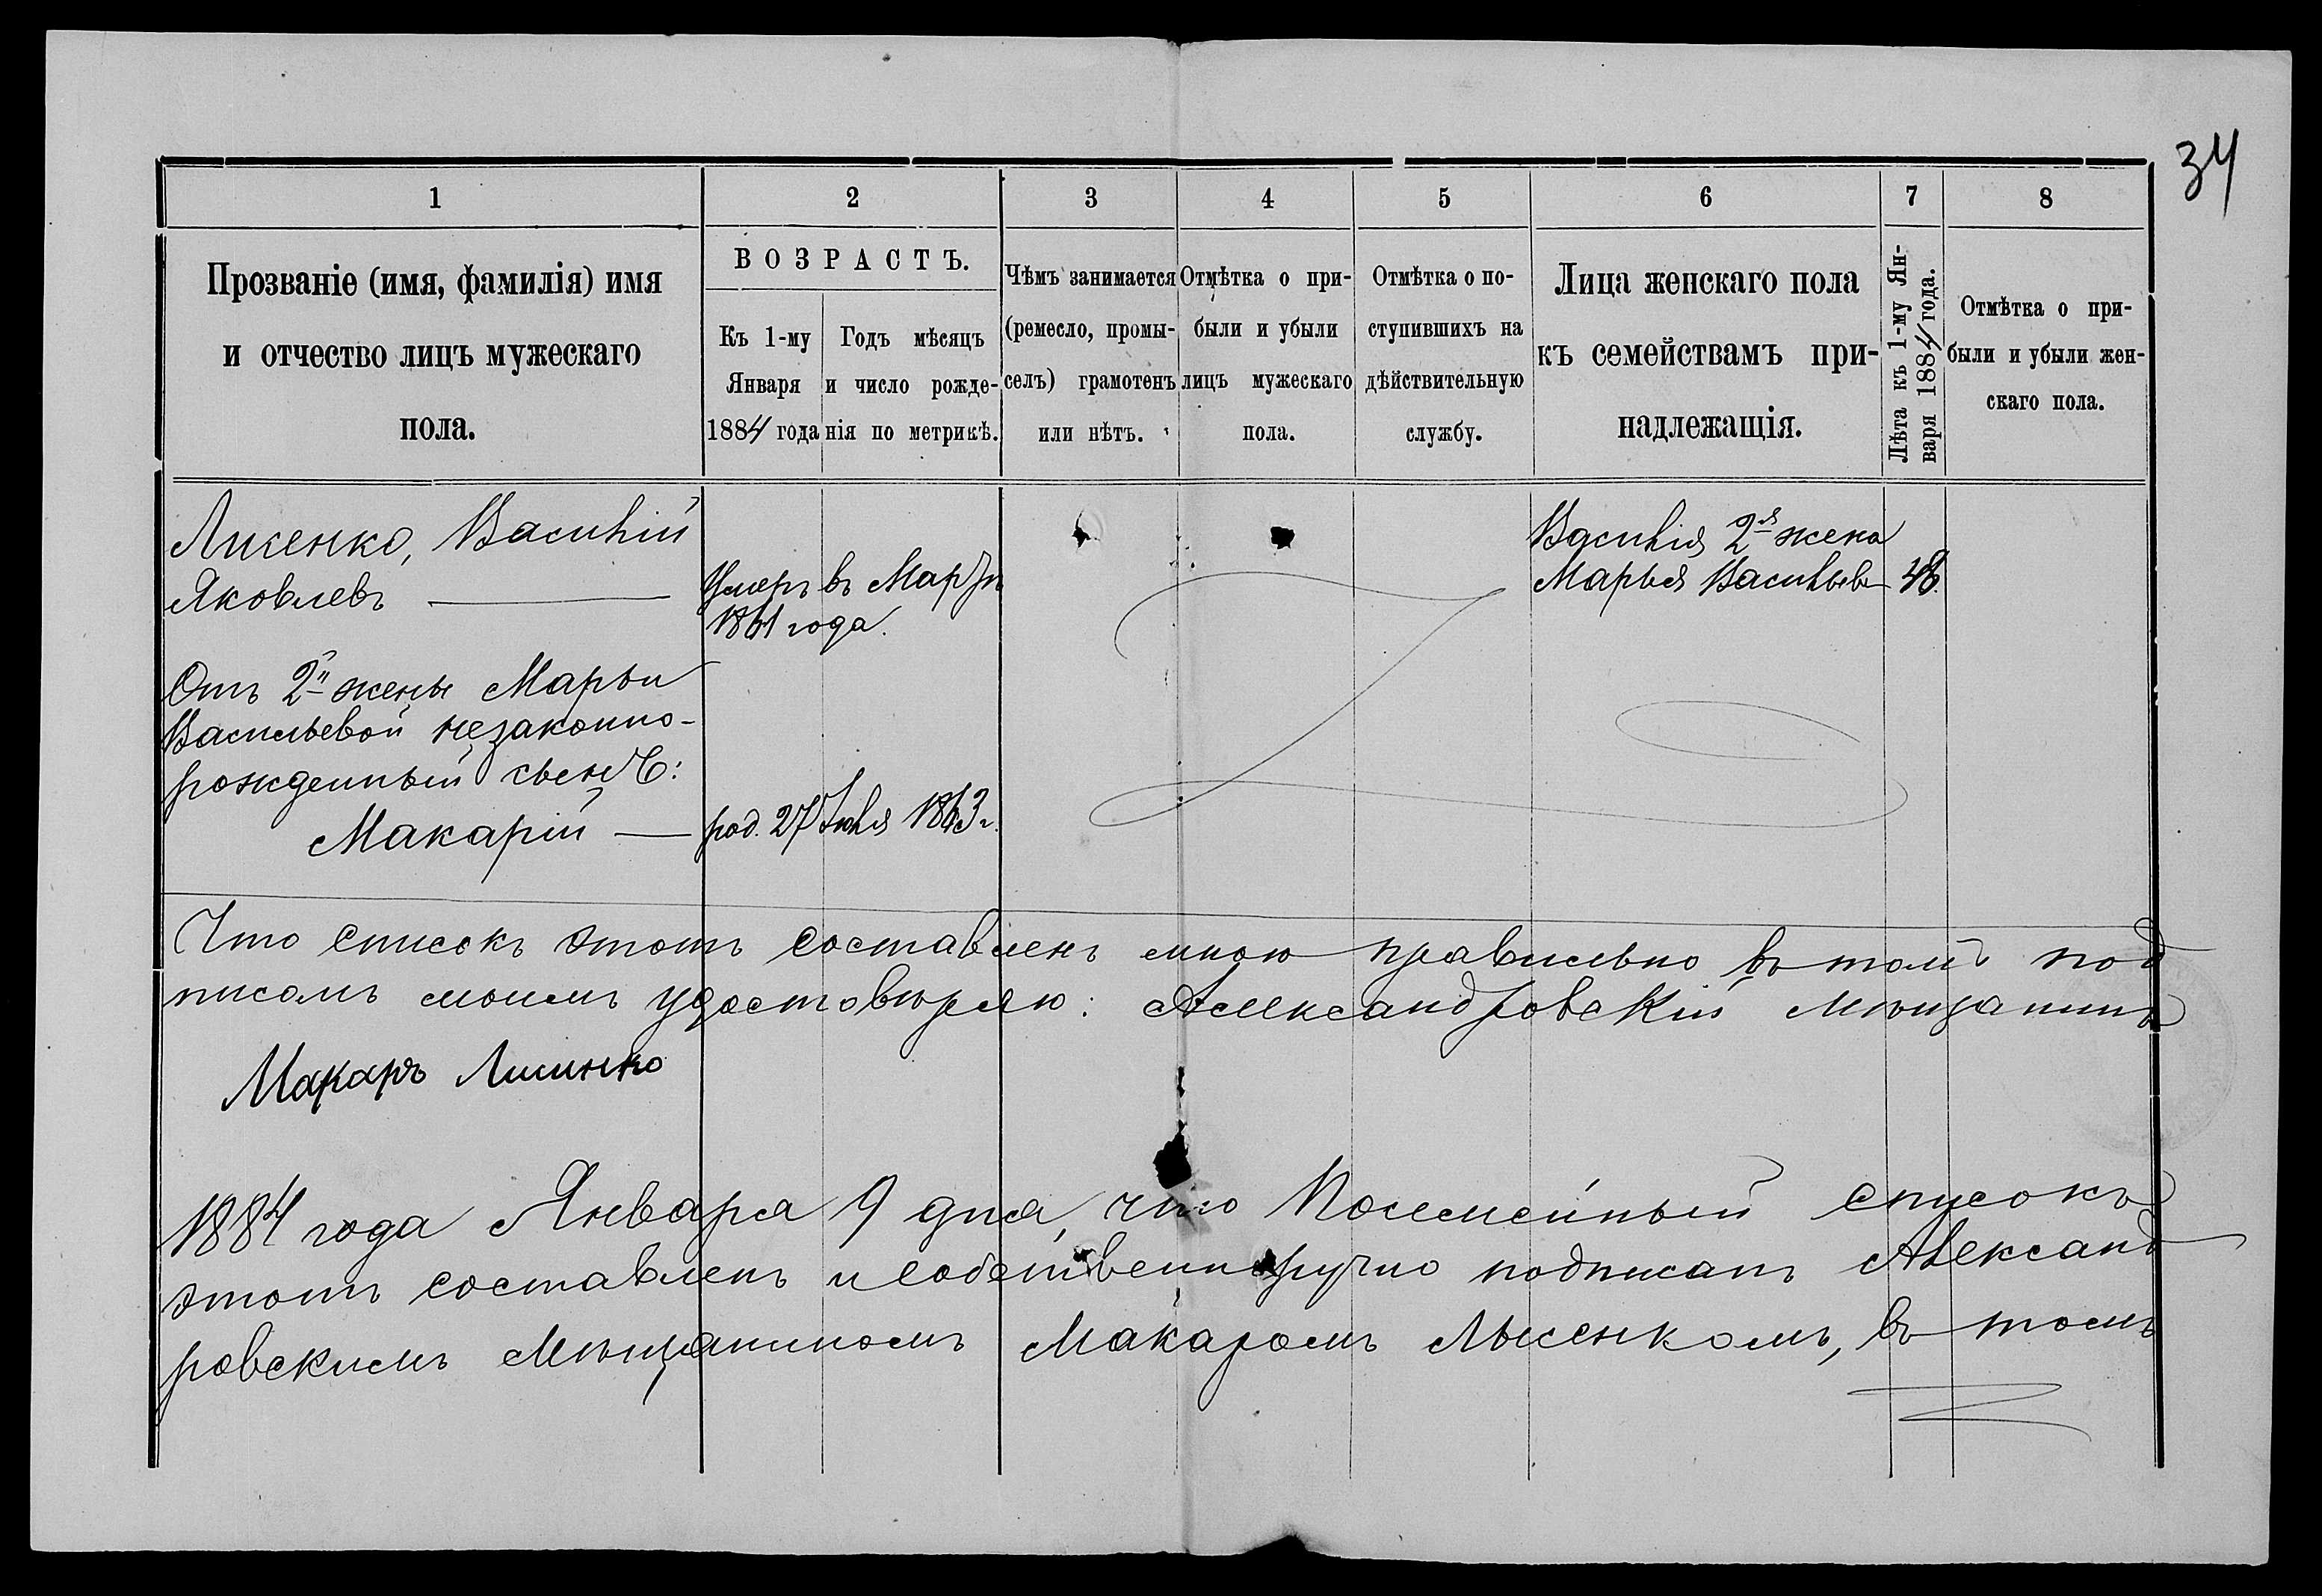 34
1
2
3
4
5
6
7
8
Прозваніе (имя, фамилія) имя
и отчество лицъ мужескаго
пола.
ВОЗРАСТЪ.
Къ 1-му
Января
1884 года
Годъ мѣсяцъ
и число рожде-
нія по метрикѣ.
Чѣмъ занимается
(ремесло, промы-
селъ) грамотенъ
или нѣтъ.
Отмѣтка о при-
были и убыли
лицъ мужескаго
пола.
Отмѣтка о по-
ступившихъ на
дѣйствительную
службу.
Лица женскаго пола
къ семействамъ при-
надлежащія.
Лѣта къ 1-му Ян-
варя 1884 года.
Отмѣтка о при-
были и убыли жен-
скаго пола.
Лисенко, Василій
Яковлевъ
Умеръ въ Мартѣ
1861 года.
Василія 2я жена
Марья Васильева 48.
Отъ 2й жены Марьи
Васильевой незаконно-
рожденный сынъ:
Макарій
род. 27 Іюля 1863 г.
Что списокъ этотъ составленъ мною правильно въ томъ под
писомъ моимъ удостовѣряю: Александровскій Мѣщанинъ
Макаръ Лисинко
1884 года Января 9 дня, что Посемейный списокъ
этотъ составленъ и собственноручно подписанъ Александ
ровскимъ Мѣщаниномъ Макаромъ Лысенкомъ, въ томъ